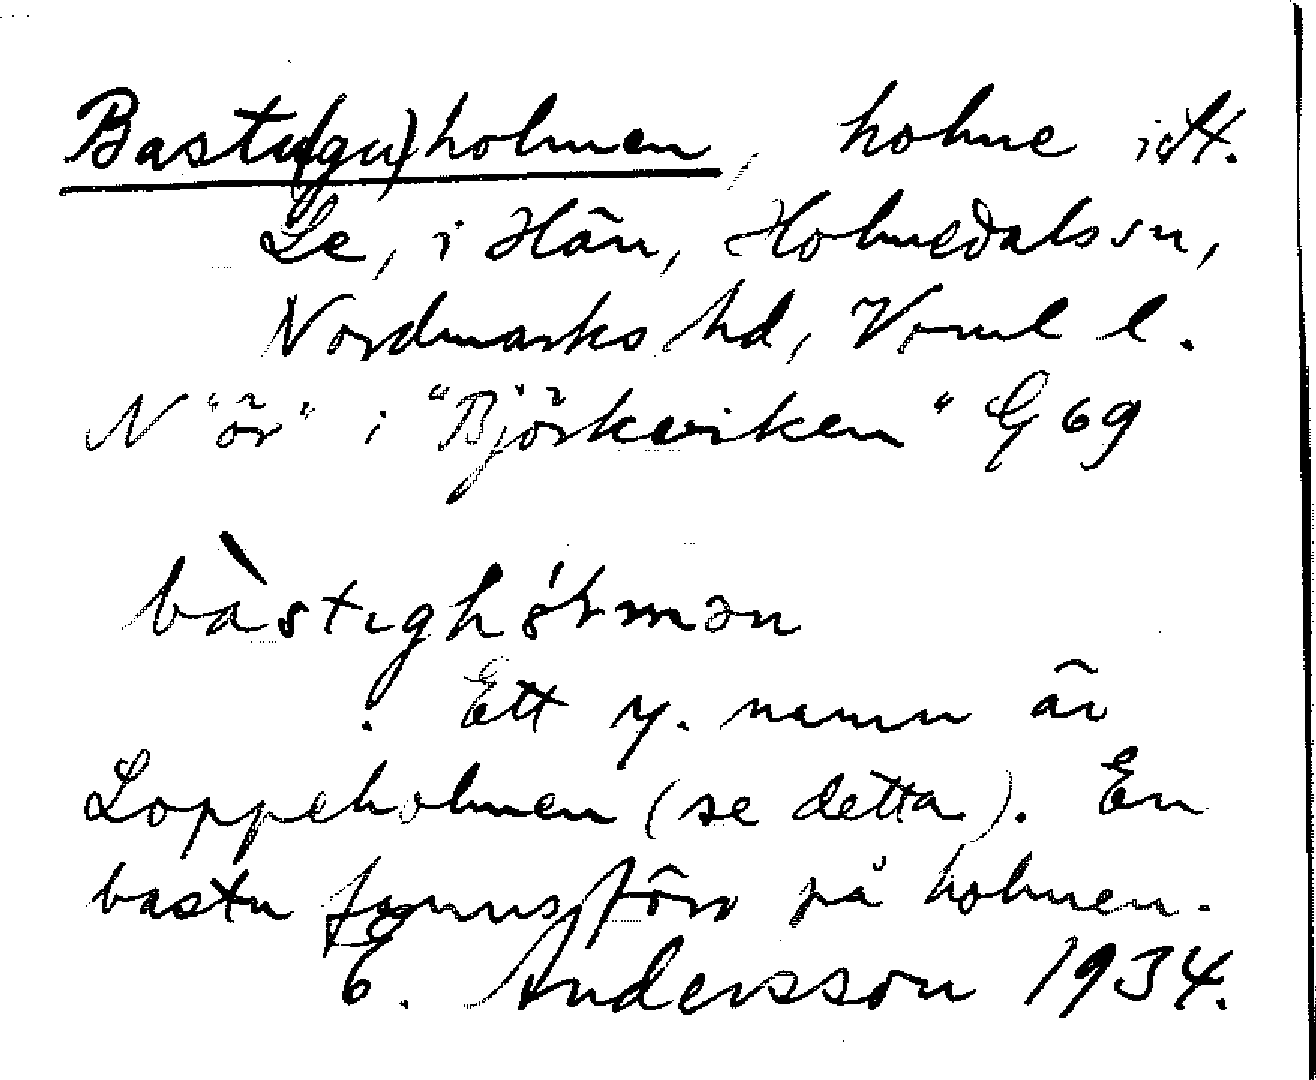 Bastu(gu)holmen, holme i st.
Le, i Hän, Holmedals sn,
Nordmarks hd, Värml l.
N "ör" i "Björkeviken" G 69
bàstughólmən
. Ett y. namn är
Loppeholmen (se detta). En
bastu fanns förr på holmen.
E. Andersson 1934.